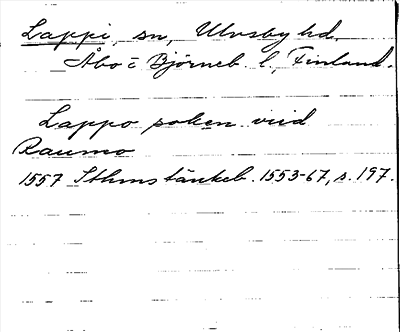 Lappi, sn, Ulvsby hd.
Åbo o Björneb. l., Finland.
Lappo soken viid
Raumo
1557 Sthms tänkeb. 1553-67, s. 197.